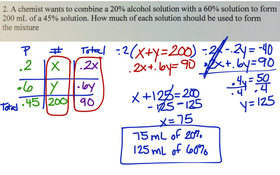 2. A chemist wants to combine a 20% alcohol solution with a 60% solution to form
200 mL of a 45% solution. How much of each solution should be used to form
the mixture
P # Total
.2 x .2x
.6 y .6y
Total .45 200 90
-.2(x+y=200)
.2x+.6y=90
-.2x-.2y=-40
.2x+.6y=90
.4y=50
.4 .4
y=125
x+125=200
-125 -125
x=75
75 mL of 20%
125 mL of 60%